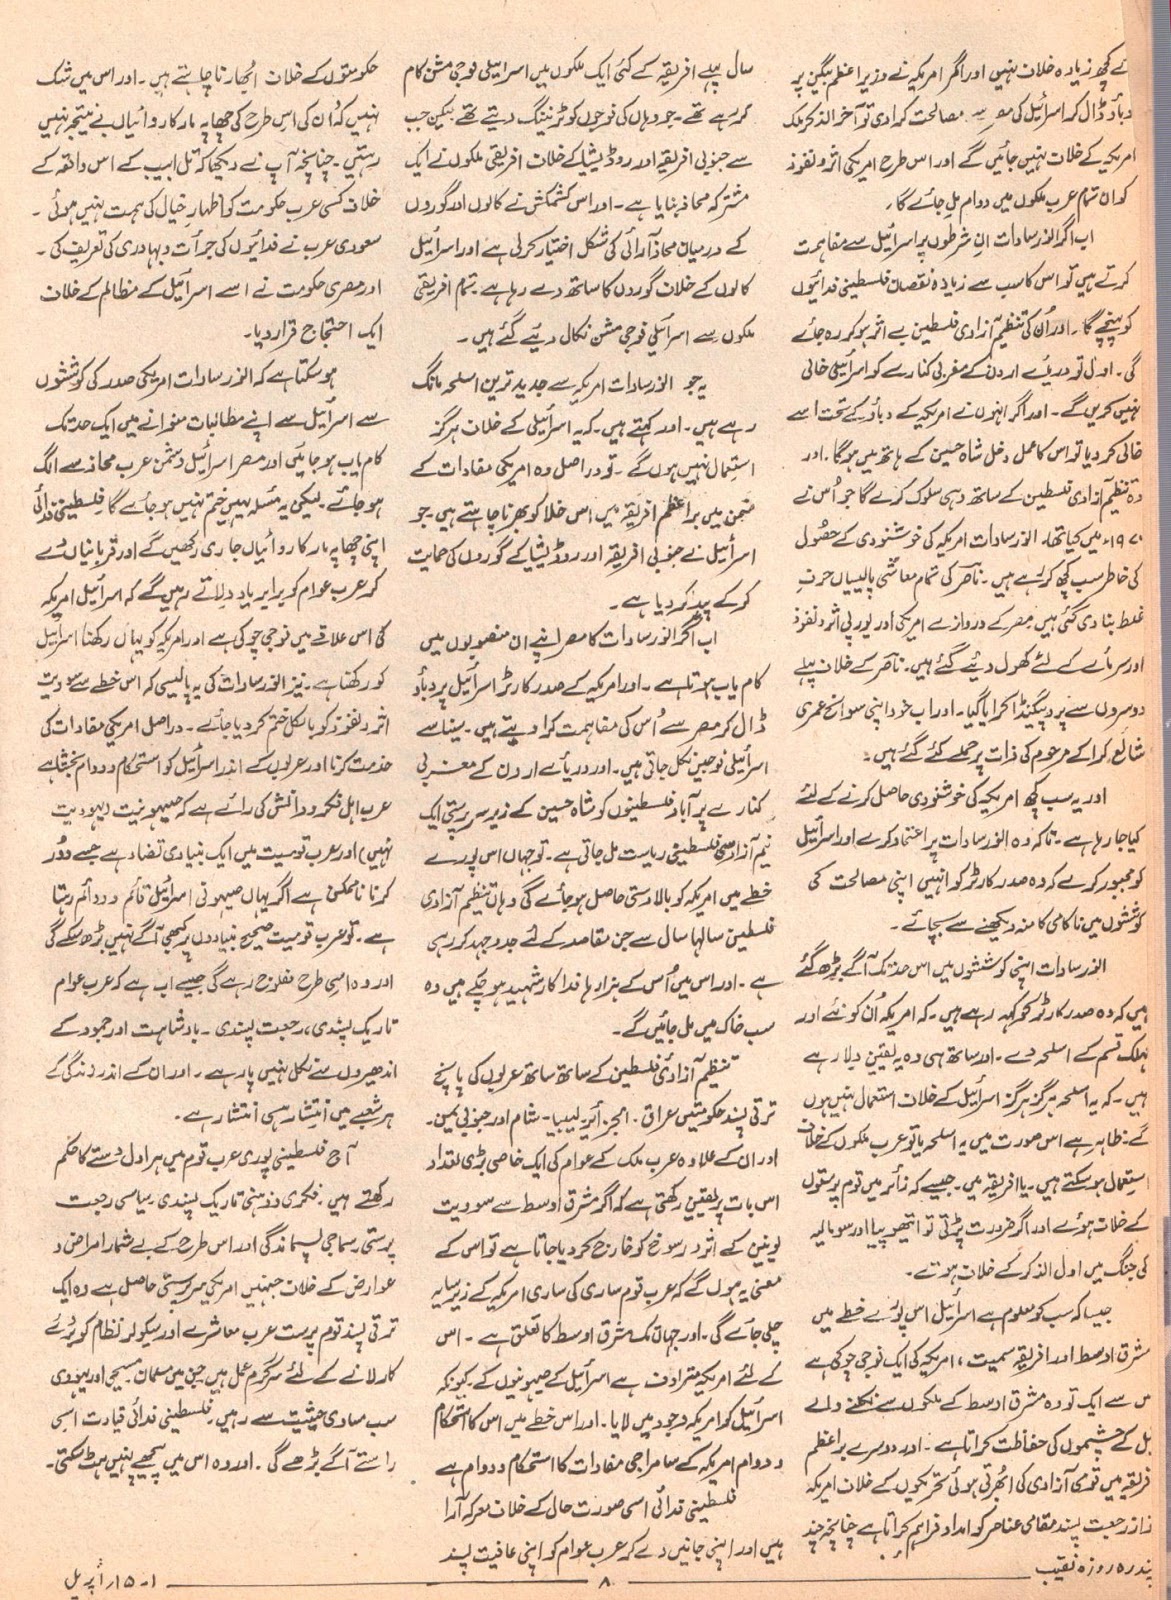 کے کچھ زیادہ خلاف نہیں اور اگر امریکہ نے وزیر اعظم بیگن پر
دباؤ ڈال کر اسرائیل کی مصر سے مصالحت کرا دی تو آخر الذکر ملک
امریکہ کے خلاف نہیں جائیں گے اور اس طرح امریکی اثر و نفوذ
کو ان تمام عرب ملکوں میں دوام مل جائے گا۔
اب اگر انور سادات ان شرطوں پر اسرائیل سے مفاہمت
کرتے ہیں تو اس کا سب سے زیادہ نقصان فلسطینی فدائیوں
کو پہنچے گا۔ اور اُن کی تنظیم آزادی فلسطین بے اثر ہو کر رہ جائے
گی۔ اول تو دریائے اردن کے مغربی کنارے کو اسرائیلی خالی
نہیں کریں گے۔ اور اگر انہوں نے امریکہ کے دباؤ کے تحت اسے
خالی کر دیا تو اس کا عمل دخل شاہ حسین کے ہاتھ میں ہوگا۔ اور
وہ تنظیم آزادی فلسطین کے ساتھ وہی سلوک کرے گا جو اُس نے
۱۹۷۰ء میں کیا تھا۔ انور سادات امریکہ کی خوشنودی کے حصول
کی خاطر سب کچھ کر رہے ہیں۔ ناصر کی تمام معاشی پالیسیاں حرفِ
غلط بنا دی گئی ہیں مصر کے دروازے امریکی اور یورپی اثر و نفوذ
اور سرمائے کے لئے کھول دیئے گئے ہیں۔ ناصر کے خلاف پہلے
دوسروں سے پروپیگنڈا کرایا گیا۔ اور اب خود اپنی سوانح عمری
شائع کرا کے مرحوم کی ذات پر حملے کئے گئے ہیں۔
اور یہ سب کچھ امریکہ کی خوشنودی حاصل کرنے کے لئے
کیا جا رہا ہے۔ تاکہ وہ انور سادات پر اعتماد کرے اور اسرائیل
کو مجبور کرے کہ وہ صدر کارٹر کو انہیں اپنی مصالحت کی
کوششوں میں ناکامی کا منہ دیکھنے سے بچائے۔
انور سادات اپنی کوششوں میں اس حد تک آگے بڑھ گئے
ہیں کہ وہ صدر کارٹر کو کہہ رہے ہیں۔ کہ امریکہ اُن کو نئے اور
مہلک قسم کے اسلحہ دے۔ اور ساتھ ہی وہ یہ یقین دلا رہے
ہیں۔ کہ یہ اسلحہ ہرگز ہرگز اسرائیل کے خلاف استعمال نہیں ہوں
گے۔ ظاہر ہے اس صورت میں یہ اسلحہ یا تو عرب ملکوں کے خلاف
استعمال ہو سکتے ہیں۔ یا افریقہ میں۔ جیسے کہ زائر میں قوم پرستوں
کے خلاف ہوئے اور اگر ضرورت پڑتی تو ایتھوپیا اور سومالیہ
کی جنگ میں اول الذکر کے خلاف ہوتے۔
جیسا کہ سب کو معلوم ہے اسرائیل اس پورے خطے میں
مشرق اوسط اور افریقہ سمیت، امریکہ کی ایک فوجی چوکی ہے
س سے ایک تو وہ مشرق اوسط کے ملکوں سے نکلنے والے
یل کے چشموں کی حفاظت کراتا ہے۔ اور دوسرے براعظم
فریقہ میں قومی آزادی کی اُبھرتی ہوئی تحریکوں کے خلاف امریکہ
نواز رجعت پسند مقامی عناصر کو امداد فراہم کراتا ہے چنانچہ چند
سال پہلے افریقہ کے کئی ایک ملکوں میں اسرائیلی فوجی مشن کام
کر رہے تھے۔ جو وہاں کی فوجوں کو ٹریننگ دیتے تھے لیکن جب
سے جنوبی افریقہ اور روڈیشیا کے خلاف افریقی ملکوں نے ایک
مشترکہ محاذ بنایا ہے۔ اور اس کشمکش نے کالوں اور گوروں
کے درمیان محاذ آرائی کی شکل اختیار کر لی ہے اور اسرائیل
کالوں کے خلاف گوروں کا ساتھ دے رہا ہے۔ تمام افریقی
ملکوں سے اسرائیلی فوجی مشن نکال دیئے گئے ہیں۔
یہ جو انور سادات امریکہ سے جدید ترین اسلحہ مانگ
رہے ہیں۔ اور کہتے ہیں۔ کہ یہ اسرائیلی کے خلاف ہرگز
استعمال نہیں ہوں گے۔ تو دراصل وہ امریکی مفادات کے
ضمن میں براعظم افریقہ میں اس خلا کو بھرنا چاہتے ہیں۔ جو
اسرائیل نے جنوبی افریقہ اور روڈیشیا کے گوروں کی حمایت
کر کے پیدا کر دیا ہے۔
اب اگر انور سادات کا مصر اپنے ان منصوبوں میں
کام یاب ہوتا ہے۔ اور امریکہ کے صدر کارٹر اسرائیل پر دباؤ
ڈال کر مصر سے اُس کی مفاہمت کرا دیتے ہیں۔ سینا سے
اسرائیلی فوجیں نکل جاتی ہیں۔ اور دریائے اردن کے مغربی
کنارے پر آباد فلسطینیوں کو شاہ حسین کے زیر سرپرستی ایک
نیم آزاد سی فلسطینی ریاست مل جاتی ہے۔ تو جہاں اس پورے
خطے میں امریکہ کو بالا دستی حاصل ہو جائے گی وہاں تنظیم آزادی
فلسطین سالہا سال سے جن مقاصد کے لئے جدوجہد کر رہی
ہے۔ اور اس میں اُس کے ہزارہا فداکار شہید ہو چکے ہیں وہ
سب خاک میں مل جائیں گے۔
تنظیم آزادی فلسطین کے ساتھ ساتھ عربوں کی پانچ
ترقی پسند حکومتیں عراق۔ الجزائر۔ لیبیا۔ شام اور جنوبی یمن۔
اور ان کے علاوہ عرب ملک کے عوام کی ایک خاصی بڑی تعداد
اس بات پر یقین رکھتی ہے کہ اگر مشرق اوسط سے سوویت
یونین کے اثر و رسوخ کو خارج کر دیا جاتا ہے تو اس کے
معنی یہ ہوں گے کہ عرب قوم ساری کی ساری امریکہ کے زیر سایہ
چلی جائے گی۔ اور جہاں تک مشرق اوسط کا تعلق ہے۔ اس
کے لئے امریکہ مترادف ہے اسرائیل کے صیہونیوں کے۔ کیونکہ
اسرائیل کو امریکہ وجود میں لایا۔ اور اس خطے میں اس کا استحکام
و دوام امریکہ کے سامراجی مفادات کا استحکام و دوام ہے
فلسطینی فدائی اسی صورت حال کے خلاف معرکہ آرا
ہیں اور اپنی جانیں دے کر عرب عوام کو اپنی عافیت پسند
حکومتوں کے خلاف اُبھارنا چاہتے ہیں۔ اور اس میں شک
نہیں کہ اُن کی اس طرح کی چھاپہ مار کارروائیاں بے نتیجہ نہیں
رہتیں۔ چنانچہ آپ نے دیکھا کہ تل ابیب کے اس واقعہ کے
خلاف کسی عرب حکومت کو اظہارِ خیال کی ہمت نہیں ہوئی۔
سعودی عرب نے فدائیوں کی جرأت و بہادری کی تعریف کی۔
اور مصری حکومت نے اسے اسرائیل کے مظالم کے خلاف
ایک احتجاج قرار دیا۔
ہو سکتا ہے کہ انور سادات امریکی صدر کی کوششوں
سے اسرائیل سے اپنے مطالبات منوانے میں ایک حد تک
کام یاب ہو جائیں اور مصر اسرائیل دشمن عرب محاذ سے الگ
ہو جائے۔ لیکن یہ مسئلہ یہیں ختم نہیں ہو جائے گا فلسطینی فدائی
اپنی چھاپہ مار کارروائیاں جاری رکھیں گے اور قربانیاں دے
کر عرب عوام کو برابر یاد دلاتے رہیں گے کہ اسرائیل امریکہ
کی اس علاقے میں فوجی چوکی ہے اور امریکہ کو یہاں رکھنا اسرائیل
کو رکھنا ہے۔ نیز انور سادات کی یہ پالیسی کہ اس خطے سے سوویت
اثر و نفوذ کو بالکل ختم کر دیا جائے۔ دراصل امریکی مفادات کی
خدمت کرنا اور عربوں کے اندر اسرائیل کو استحکام و دوام بخشنا ہے
عرب اہل فکر و دانش کی رائے ہے کہ صیہونیت (یہودیت
نہیں) اور عرب قومیت میں ایک بنیادی تضاد ہے جسے دور
کرنا ناممکن ہے اگر یہاں صیہونی اسرائیل قائم و دائم رہتا
ہے۔ تو عرب قومیت صحیح بنیادوں پر کبھی آگے نہیں بڑھ سکے گی
اور وہ اسی طرح مفلوج رہے گی جیسے اب ہے کہ عرب عوام
تاریک پسندی، رجعت پسندی۔ بادشاہت اور جمود کے
اندھیروں سے نکل نہیں پا رہے۔ اور ان کے اندر زندگی کے
ہر شعبے میں انتشار ہی انتشار ہے۔
آج فلسطینی پوری عرب قوم میں ہراول دستے کا حکم
رکھتے ہیں۔ فکری و ذہنی تاریک پسندی۔ سیاسی رجعت
پرستی، سماجی پسماندگی اور اس طرح کے بے شمار امراض و
عوارض کے خلاف جنہیں امریکی سرپرستی حاصل ہے وہ ایک
ترقی پسند قوم پرست عرب معاشرے اور سیکولر نظام کو بروئے
کار لانے کے لئے سرگرم عمل ہیں جن میں مسلمان۔ مسیحی اور یہودی
سب مساوی حیثیت سے رہیں۔ فلسطینی فدائی قیادت اسی
راستے آگے بڑھے گی۔ اور وہ اس میں پیچھے نہیں ہٹ سکتی۔
پندرہ روزہ نقیب
۸
۱۔ ۱۵؍ اپریل